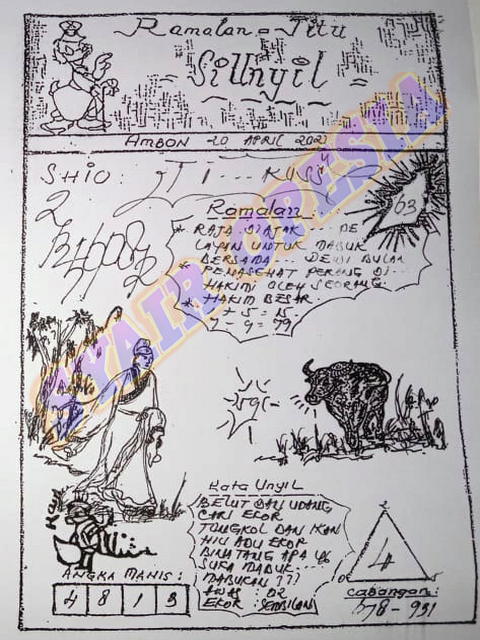 Ramalan = Jitu
SiUnyil
AMBON 20 APRIL 202
SHIO :
63
Ramalan
* RAJA DIAJAK ... PE
LAYAN UNTUK MABUK
BERSAMA ... DEWI BULAN
* PENASEHAT PERANG DI -
HAKIMI OLEH SEORANG
* HAKIM BESAR.
+ 5 = 15
7 - 9 = 79
SYAIR OPESIA
Kata Unyil
BELUT DAN UDANG
CARI EKOR
TONGKOL DAN IKAN
HIU ADU EKOR
BINATANG APA YG
SUKA MABUK ...
MABUKAN ???
AWAS : 02
EKOR : SEMBILAN
2
4
0 5
ANGKA MANIS :
4 8 1 3
Cabangan :
678 - 931